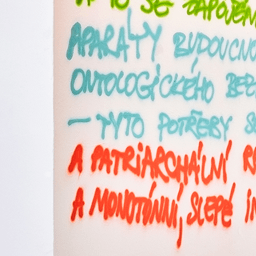 A TO SE ZAPOVĚN
APARÁTY BUDOUCNO
ONTOLOGICKÉHO BEZ
— TYTO POTŘEBY S
A PATRIARCHÁLNÍ R
A MONOTÓNNÍ, SLEPÉ